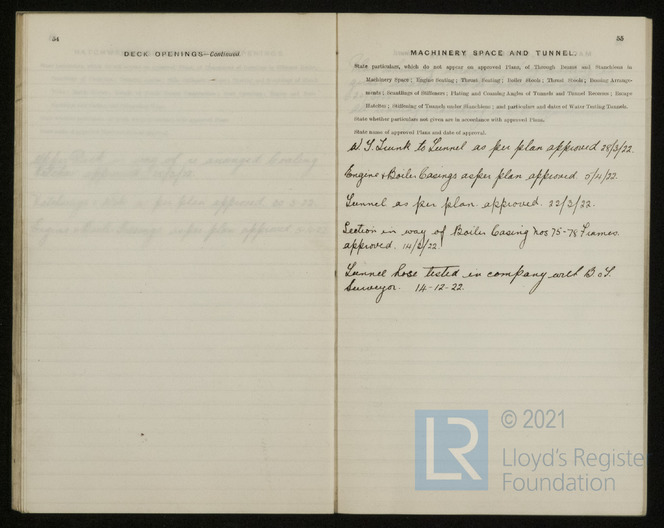 54
DECK OPENINGS—Continued.
55
MACHINERY SPACE AND TUNNEL.
State particulars, which do not appear on approved Plans, of Through Beams and Stanchions in
Machinery Space; Engine Seating; Thrust Seating; Boiler Stools; Thrust Stools; Bossing Arrange-
ments; Scantlings of Stiffeners; Plating and Coaming Angles of Tunnels and Tunnel Recesses; Escape
Hatches; Stiffening of Tunnels under Stanchions; and particulars and dates of Water Testing Tunnels.
State whether particulars not given are in accordance with approved Plans.
State name of approved Plans and date of approval.
W. T. Trunk to Tunnel as per plan approved 28/3/22.
Engine & Boiler Casings as per plan approved 5/4/22.
Tunnel as per plan approved 22/3/22.
Section in way of Boiler Casing Nos 75-78 Frames
approved. 14/2/22
Tunnel hose tested in company with B o T.
Surveyor. 14-12-22.
LR
© 2021
Lloyd's Register
Foundation